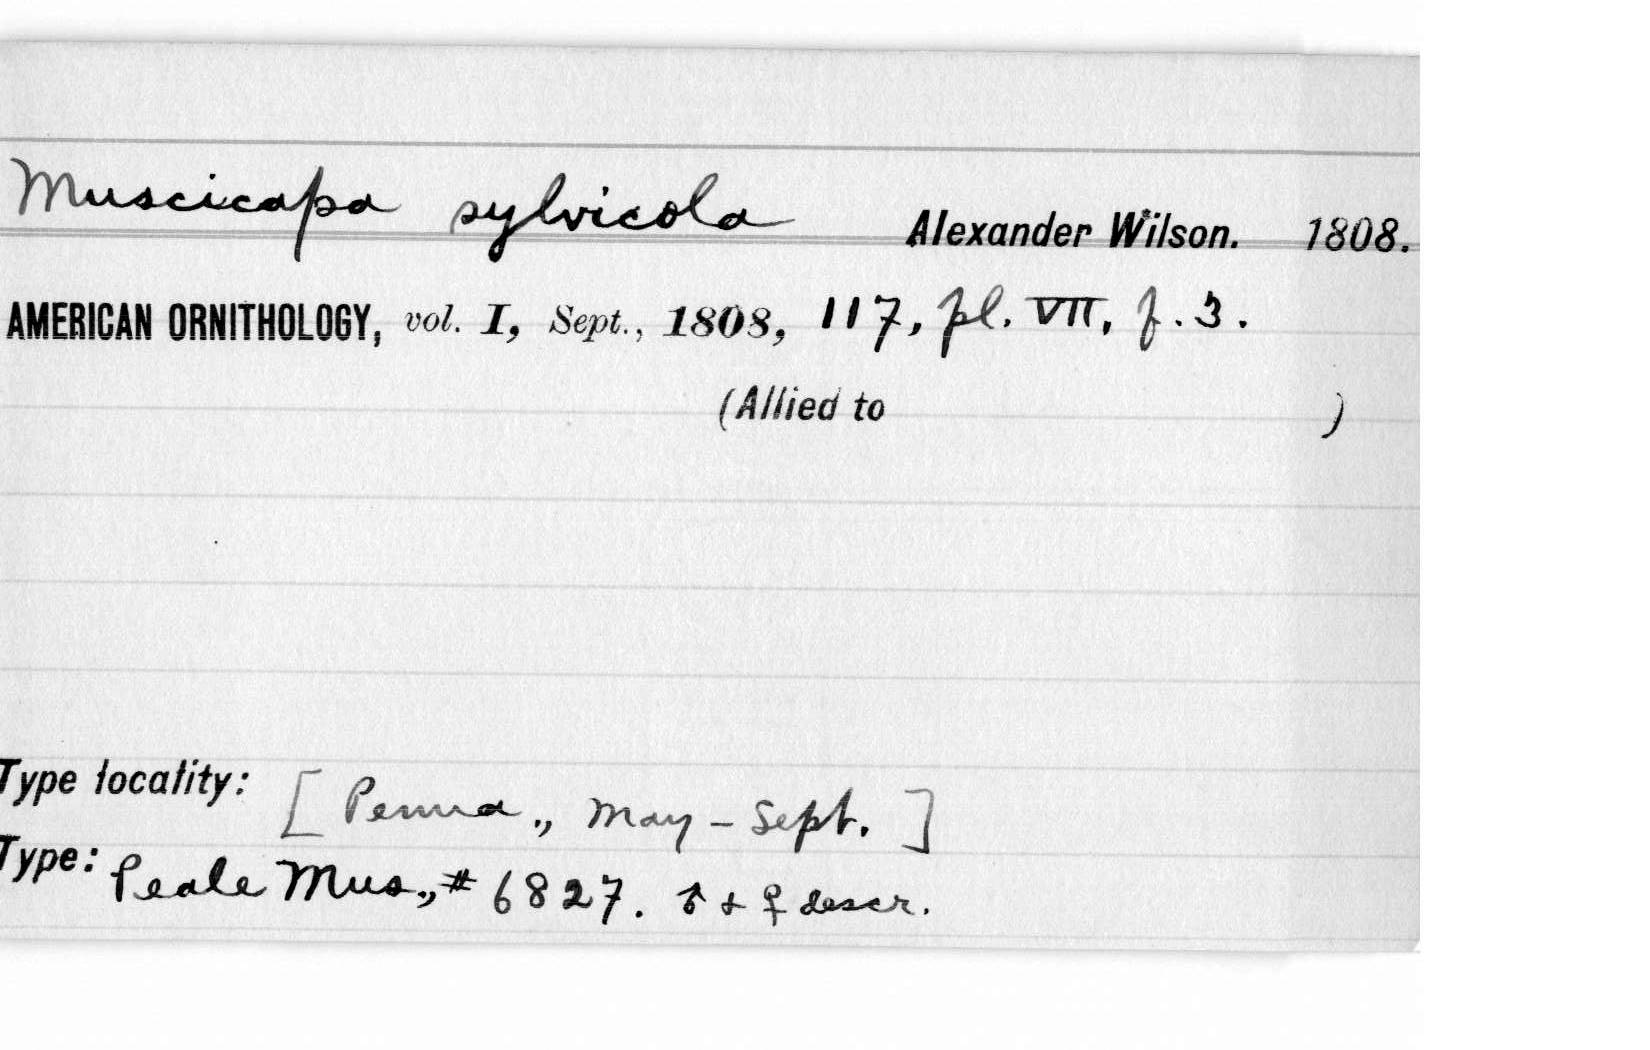 Muscicapa sylvicola Alexander Wilson. 1808.
AMERICAN ORNITHOLOGY, vol. I, Sept., 1808, 117, pl. VII, f. 3.
(Allied to )
Type locality: [Penna., May - Sept.]
Type: Peale Mus., # 6827. ♂ + ♀ descr.